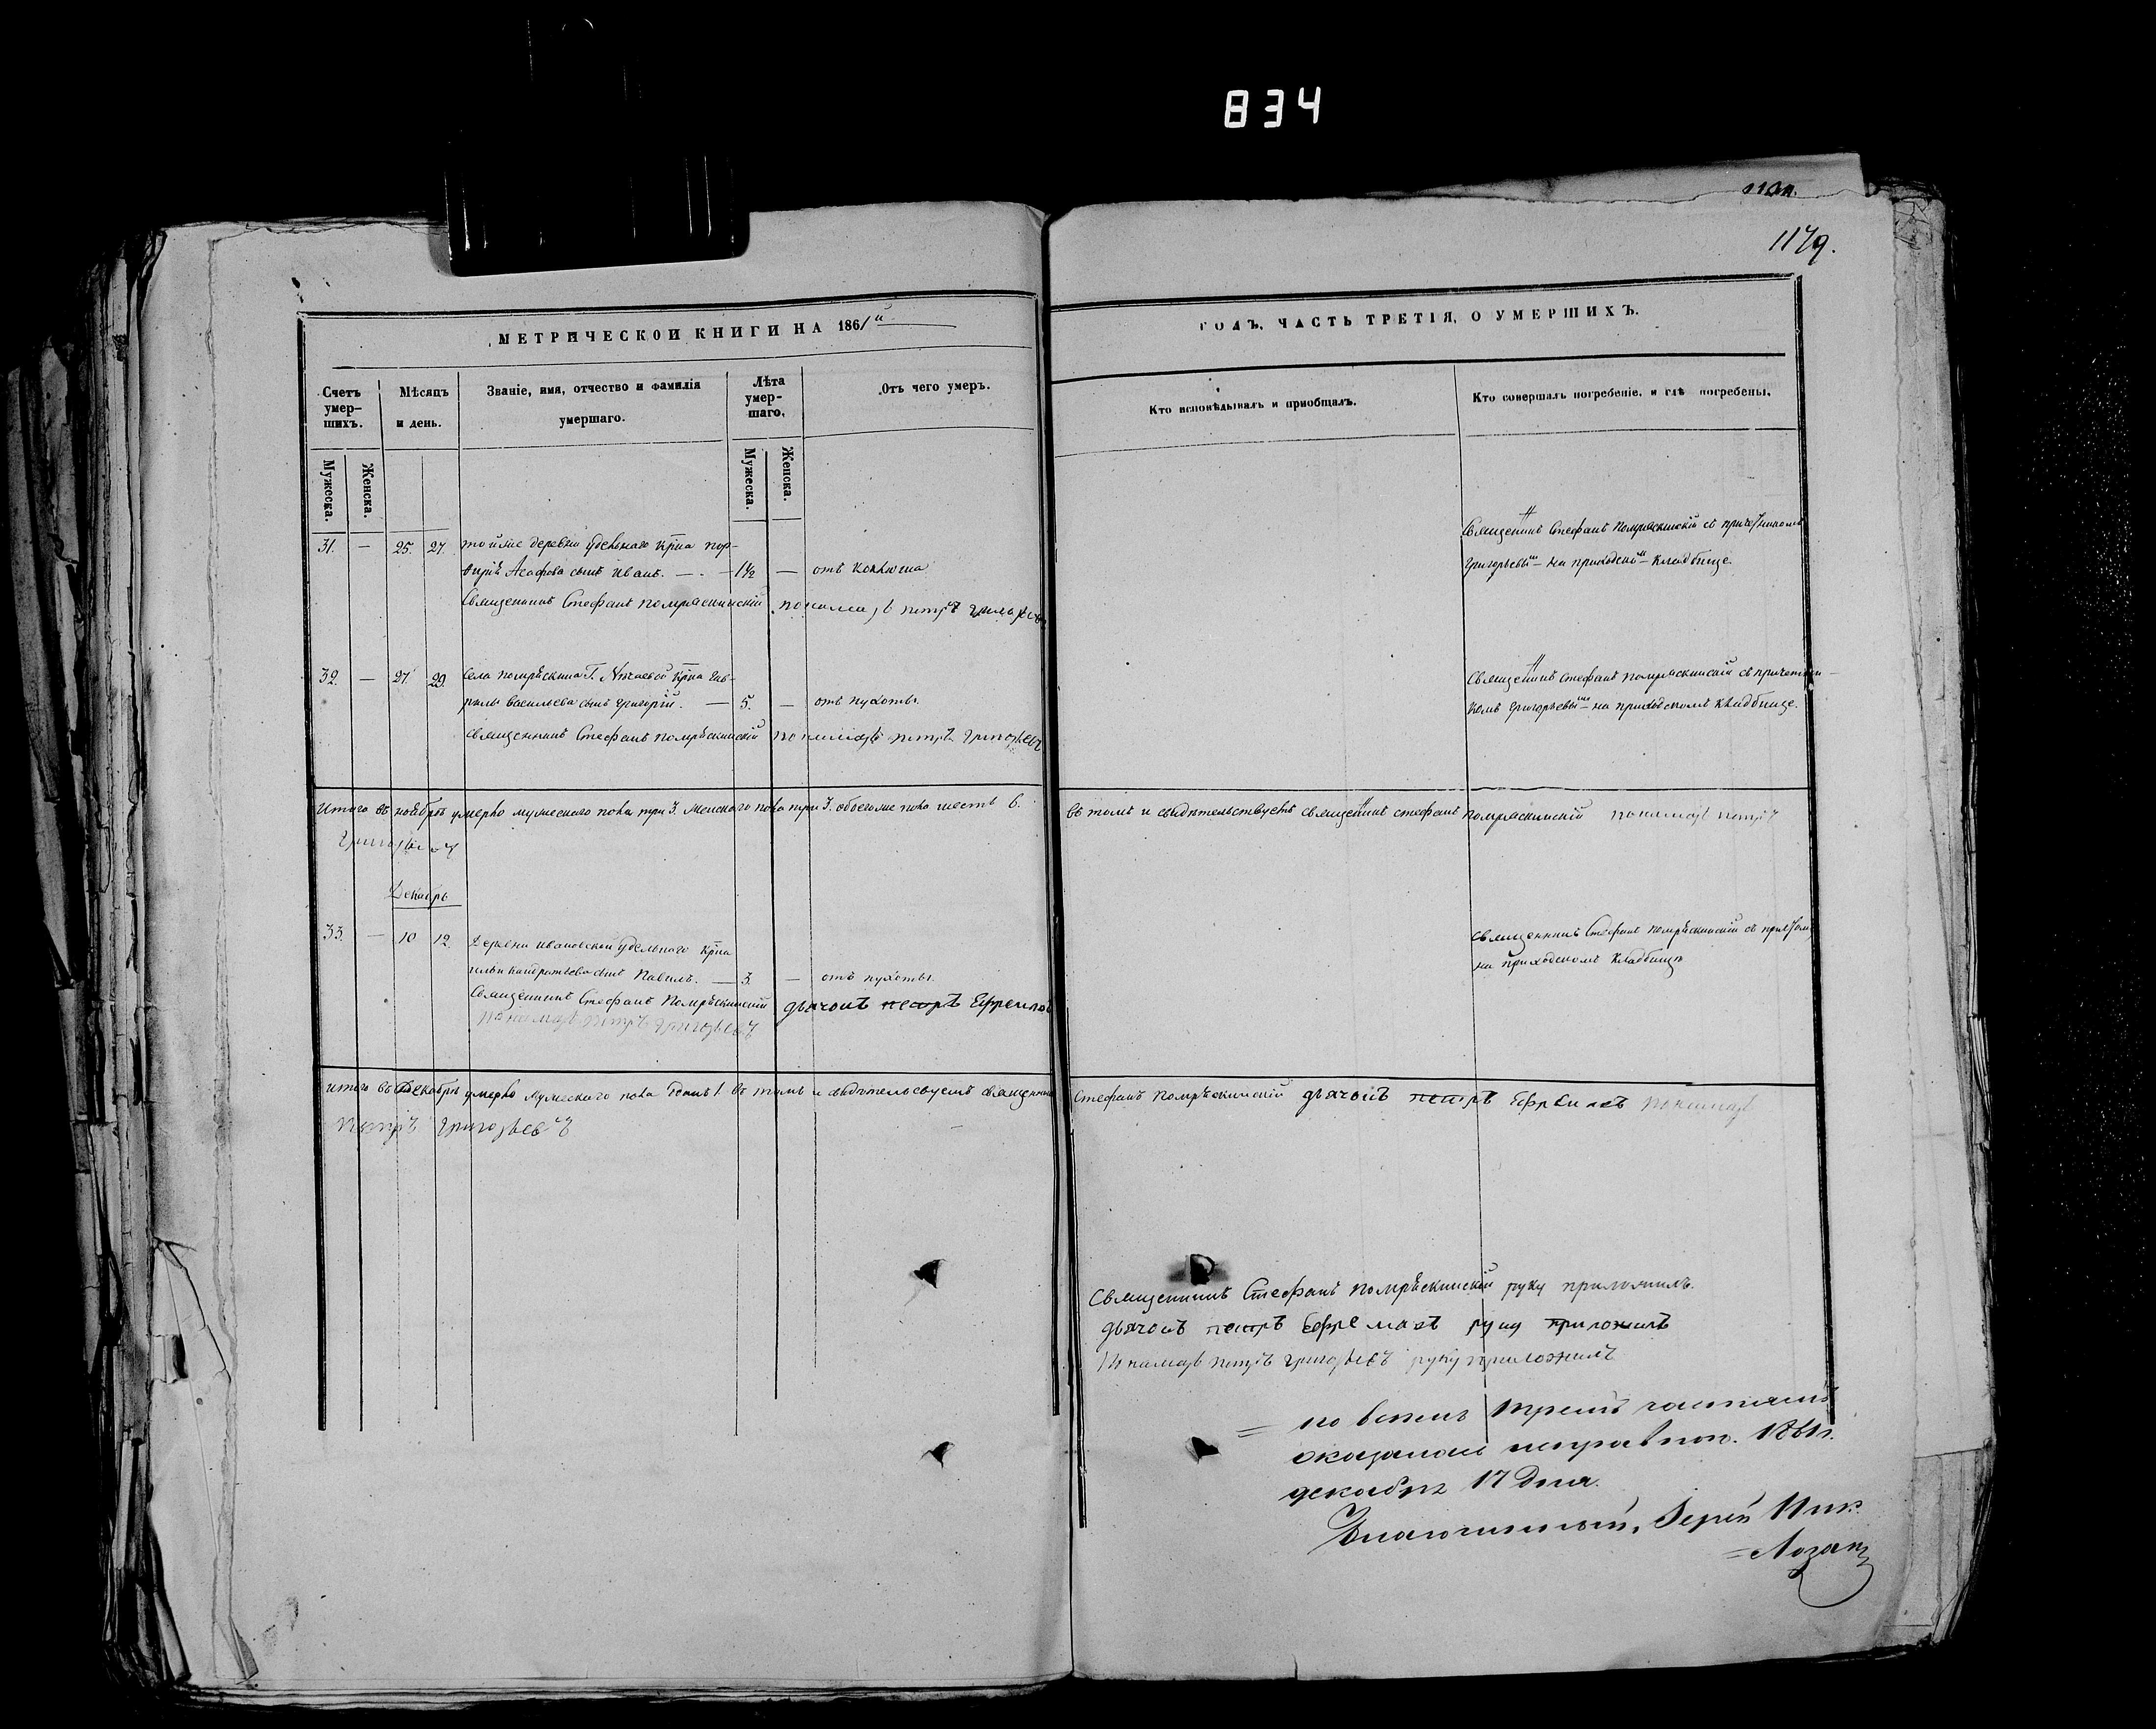 834
1179.
МЕТРИЧЕСКОЙ КНИГИ НА 1861й
ГОДЪ, ЧАСТЬ ТРЕТІЯ, О УМЕРШИХЪ.
Счетъ умер-шихъ.
Мѣсяцъ и день.
Званіе, имя, отчество и фамилія умершаго.
Лѣта умер-шаго.
Отъ чего умеръ.
Кто исповѣдывалъ и пріобщалъ.
Кто совершалъ погребеніе, и гдѣ погребены.
Мужеска.
Женска.
Мужеска.
Женска.
31. — 25. 27. той же деревни удѣльнаго крна пор-
фирія Агафова сынъ Иванъ. — 1½ — отъ коклюша
Священникъ Стефанъ Помряскинскій пономарь петръ григорьевъ
Священникъ Стефанъ Помряскинскій съ причетникомъ
Григорьевымъ на приходскомъ кладбище.
32. — 27 29. Села помряскина Г. крна Гав-
рилы Васильева сынъ Григорій. — 5. — отъ пухоты.
Священникъ Стефанъ Помряскинскій пономарь петръ григорьевъ
Священникъ Стефанъ Помряскинскій съ причетни-
комъ Григорьевымъ на приходскомъ кладбище.
Итого въ ноябрѣ умерло мужескаго пола три 3. женскаго пола три 3. обоегоже пола шесть 6.
въ томъ и свидѣтельствуетъ священникъ стефанъ помряскинскій пономарь петръ
григорьевъ
Декабрь
33. — 10 12. Деревни ивановской удѣльнаго крна
ильи кандратьева сынъ Павилъ. — 3. — отъ пухоты.
Священникъ Стефанъ Помряскинскій дьячокъ петръ Ефремовъ
пономарь петръ григорьевъ
Священникъ Стефанъ Помряскинскій съ причтомъ
на приходскомъ кладбище
итого въ Декабрѣ умерло мужескаго пола одинъ 1. въ томъ и свидѣтельсвуемъ священникъ
Стефанъ Помряскинскій дьячокъ петръ Ефремовъ пономарь
петръ григорьевъ
Священникъ Стефанъ Помряскинскій руку приложилъ.
дьячокъ петръ Ефремовъ руку приложилъ
Пономарь петръ григорьевъ руку приложилъ
= по всемъ тремъ частямъ
оказалось исправною. 1861г.
декабря 17 дня.
Благочинный, Іерей Ник.